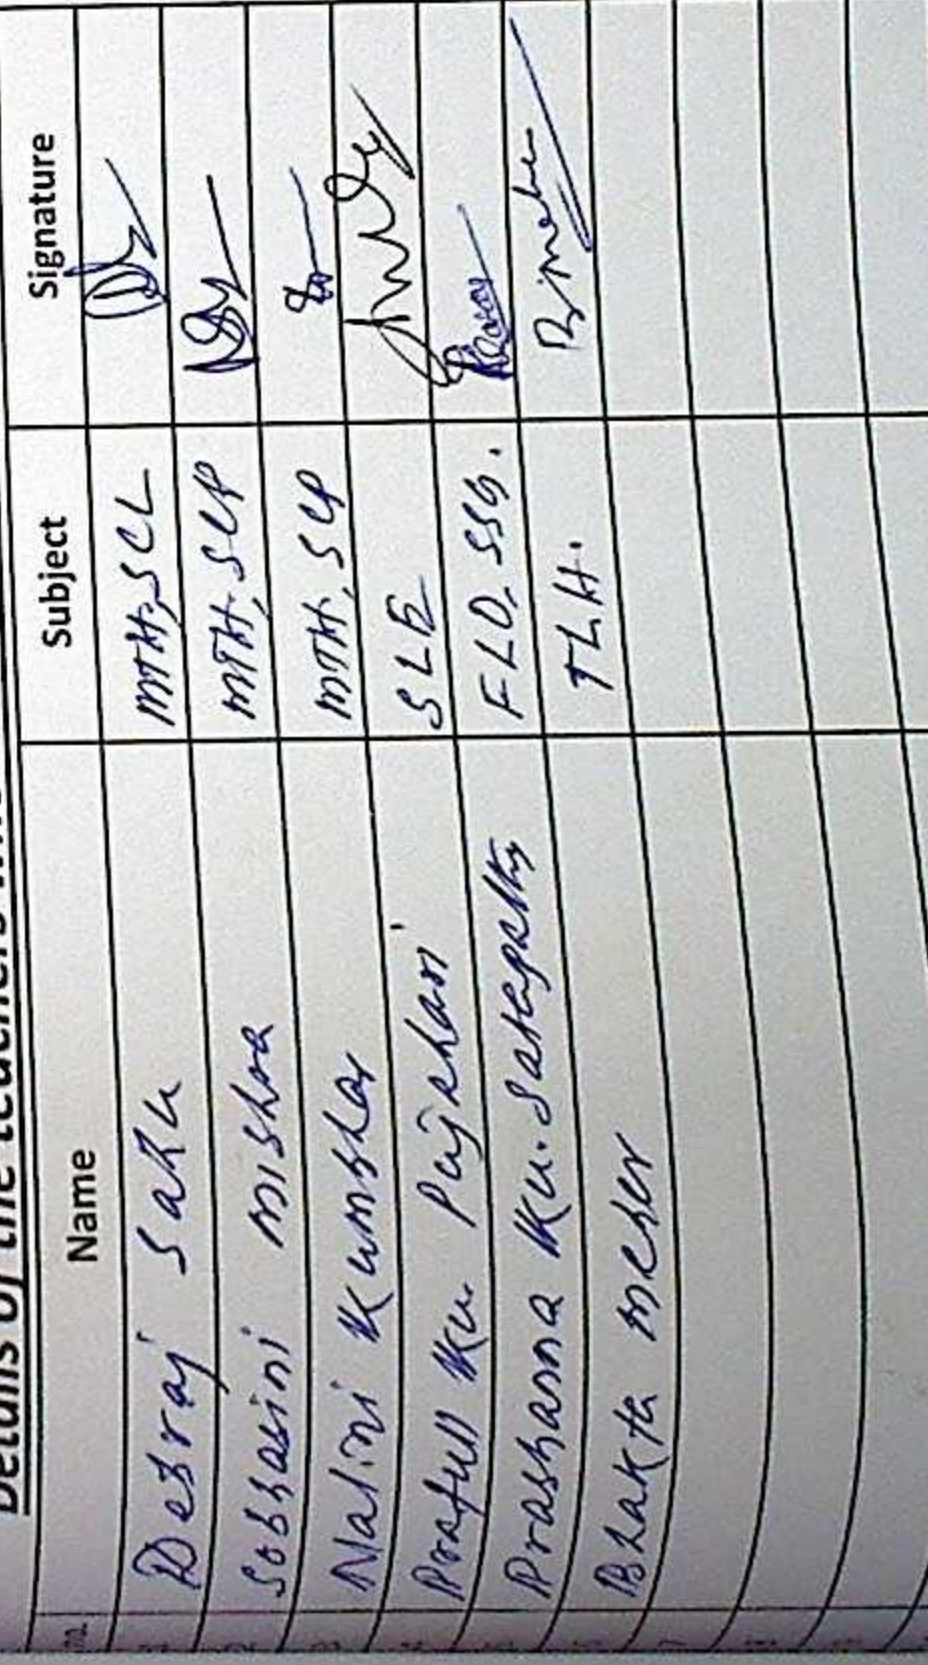 Details of the teachers
Name Subject Signature
Debraj Sahu MTH, SCL
Sobhasini Mishra MTH, SCP
Nalini Kumbhar MTH, SCP
Prafull Ku. Pujahari SLE
Prashanna Ku. Satapathy FLO, SSG.
Bhakta Meher TLH.